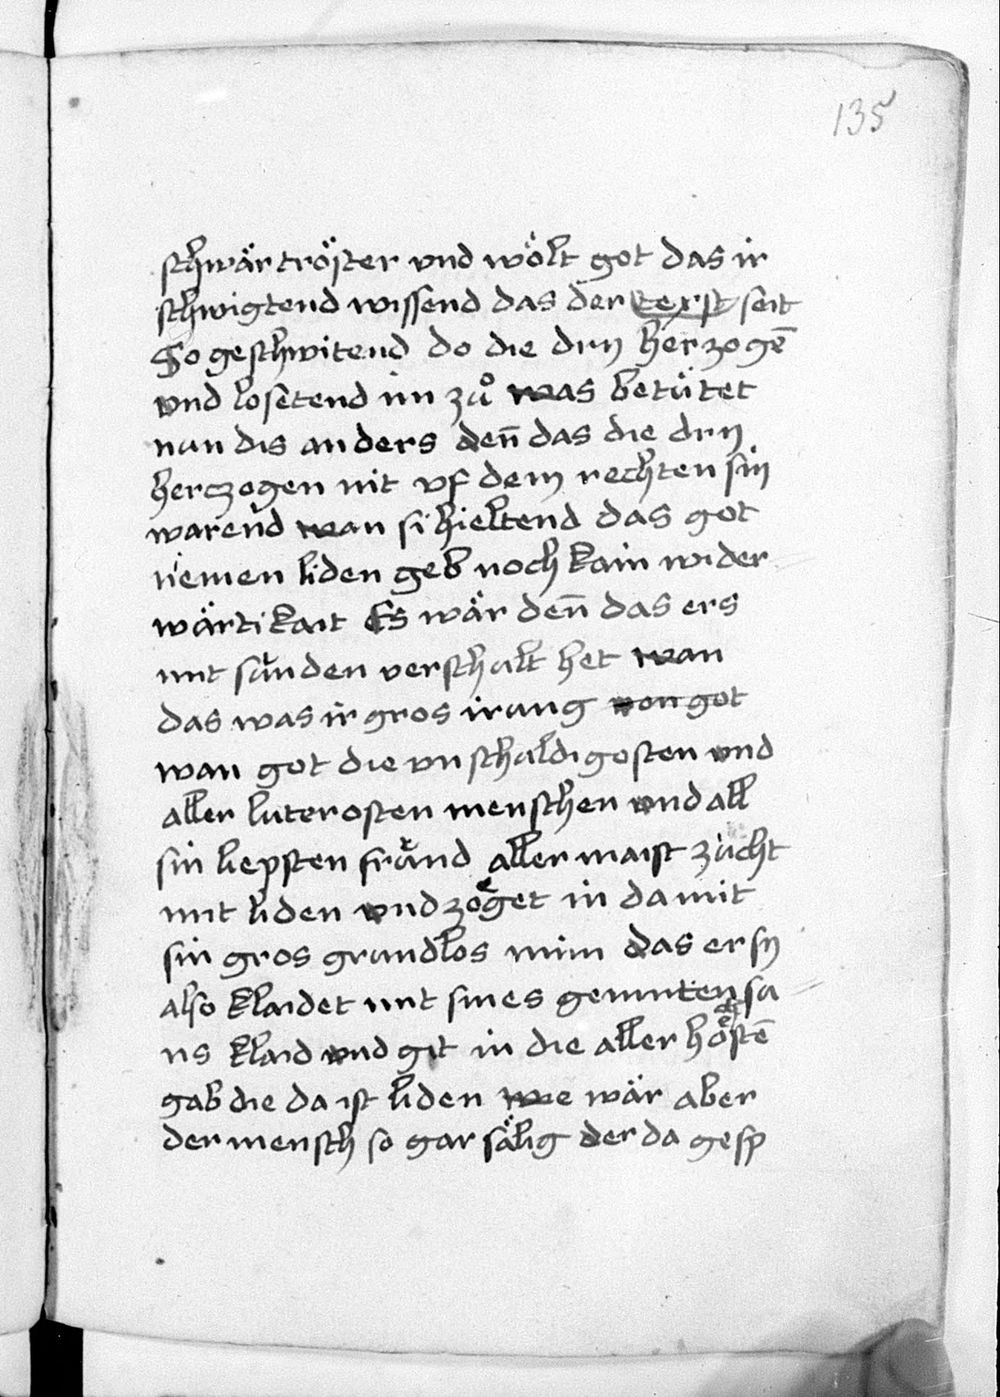 135
schwär tröster vnd wo̎lt got das ir
schwigtend wissend das der text seit
So geschwitend do die dry herzogē
vnd losetend im zů was betütet
nun dis anders den̄ das die dry
herczogen nit vf dem rechten sin
warend wan si hieltend das got
niemen liden geb noch kain wider
wärtikait Es wär den̄ das ers
mit sünden verschult het wan
das was ir gros irung von got
wan got die vnschuldigosten vnd
aller luterosten menschen vnd all
sin liepsten fründ aller maist zücht
mit liden vnd zoͤget in da mit
sin gros grundlos mim das er sy
also klaidet mit sines gemmten su
ns klaid vnd git in die aller hoͤchstē
gab die da ist liden we wär aber
der mensch so gar sälig der da gesp